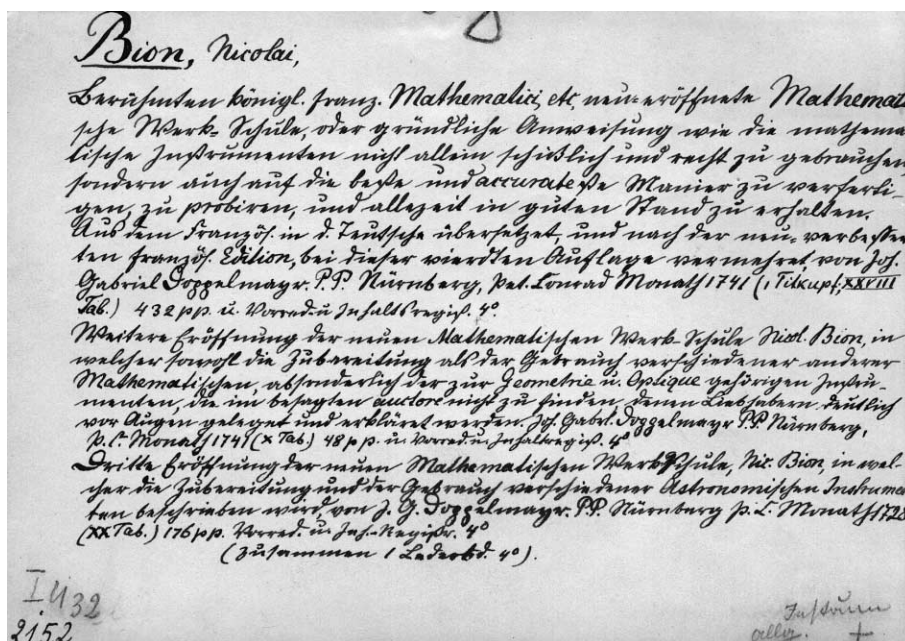 Bion, Nicolai,
Berühmten königl. franz. Mathematici, etc. neu-eröffnete Mathemati
sche Werk-Schule, oder gründliche Anweisung wie die mathema
tische Instrumenten nicht allein schicklich und recht zu gebrauchen,
sondern auch auf die beste und accurateste Manier zu verferti-
gen, zu probiren, und allezeit in guten Stand zu erhalten.
Aus dem Französ. in d. Teutsche übersetzet, und nach der neu-verbesser
ten französ. Edition, bei dieser vierdten Auflage vermehret, von Joh.
Gabriel Doppelmayr. P.P. Nürnberg, Pet. Conrad Monath 1741 (1 Titkupf, XXVIII
Tab.) 432 pp. u. Vorred. u Inhaltsregist. 4°
Weitere Eröffnung der neuen Mathematischen Werk-Schule Nicol. Bion, in
welcher sowohl die Zubereitung als der Gebrauch verschiedener anderer
Mathematischen, absonderlich der zur Geometrie u. Optique gehörigen Instru-
menten, die im besagten auctore nicht zu finden, denen Liebhabern deutlich
vor Augen geleget und erkläret werden. Joh. Gabrl. Doppelmayr P.P. Nürnberg,
P. C. Monath 1741 (X Tab.) 48 pp. u. Vorred. u. Inhaltregist. 4°
Dritte Eröffnung der neuen Mathematischen Werk Schule, Nic. Bion, in wel-
cher die Zubereitung und der Gebrauch verschiedener Astronomischen Instrume
ten beschrieben wird, von J. G. Doppelmayr. P.P. Nürnberg P. C. Monath 1728
(XX Tab.) 176 pp. Vorred. u. Inh.-Registr. 4°
(Zusammen 1 Lederbd. 4°).
I 432
2152
allg. +